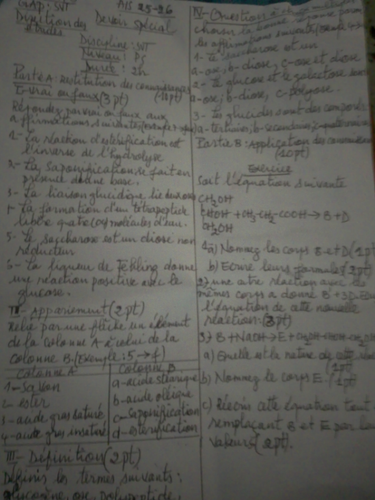 AIS 25-26
Direction des Devoir spécial
études
Discipline: SVT
Niveau: Pc
Durée: 2h
Partie A: restitution des connaissances
(10pt)
I- vrai ou faux (3pt)
Répondez par vrai ou faux aux
affirmations suivantes
1- La réaction d'estérification est
l'inverse de l'hydrolyse
2- La saponification se fait en
présence d'une base.
3- La liaison glucidique lie deux oses
4- La formation d'un tétrapeptide
libère quatre (04) molécules d'eau.
5- Le saccharose est un diose non
réducteur
6- La liqueur de Fehling donne
une réaction positive avec le
glucose.
II- Appariement (2pt)
Relie par une flèche un élément
de la colonne A à celui de la
colonne B (Exemple: 5 → f)
Colonne A
1- Savon
2- ester
3- acide gras saturé
4- acide gras insaturé
Colonne B
a- acide stéarique
b- acide oléique
c- Saponification
d- estérification
III- Définition (2pt)
Définis les termes suivants:
glycogène ou polypeptide.
IV- Question à choix multiples
les affirmations suivantes
1- Le saccharose est un
a- ose, b- diose, c- ose et diose
2- Le glucose et le galactose sont
a- ose, b- diose, c- polyose.
3- Les glucides sont des composés
a- tertiaires, b- secondaires, c- quaternaires
Partie B: Application des connaissances
(10pt)
Exercice
Soit l'équation suivante
CH₂OH
CHOH + CH₃-CH₂-COOH → B + D
CH₂OH
1- a) Nommez les corps B et D (1pt)
b) Ecrire leurs formules (2pt)
2) une autre réaction avec les
mêmes corps a donné B + 3D. Ecrire
l'équation de cette nouvelle
réaction. (3pt)
3) B + NaOH → E + CH₂OH-CHOH-CH₂OH
a) Quelle est la nature de cette réaction
(1pt)
b) Nommez le corps E. (1pt)
c) Réécris cette équation tout
remplaçant B et E par leurs
valeurs (2pt).